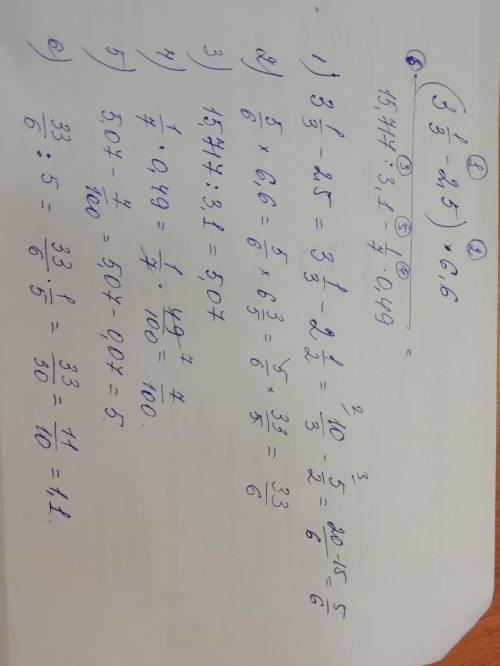 6. (3 1/3 - 2,5) * 6,6 =
15,717 : 3,1 - 1/7 · 0,49
1) 3 1/3 - 2,5 = 3 1/3 - 2 1/2 = 10/3 - 5/2 = 20-15/6 = 5/6
2) 5/6 * 6,6 = 5/6 * 6 3/5 = 5/6 * 33/5 = 33/6
3) 15,717 : 3,1 = 5,07
4) 1/7 · 0,49 = 1/7 · 49/100 = 7/100.
5) 5,07 - 7/100 = 5,07 - 0,07 = 5.
6) 33/6 : 5 = 33/6 · 1/5 = 33/30 = 11/10 = 1,1.